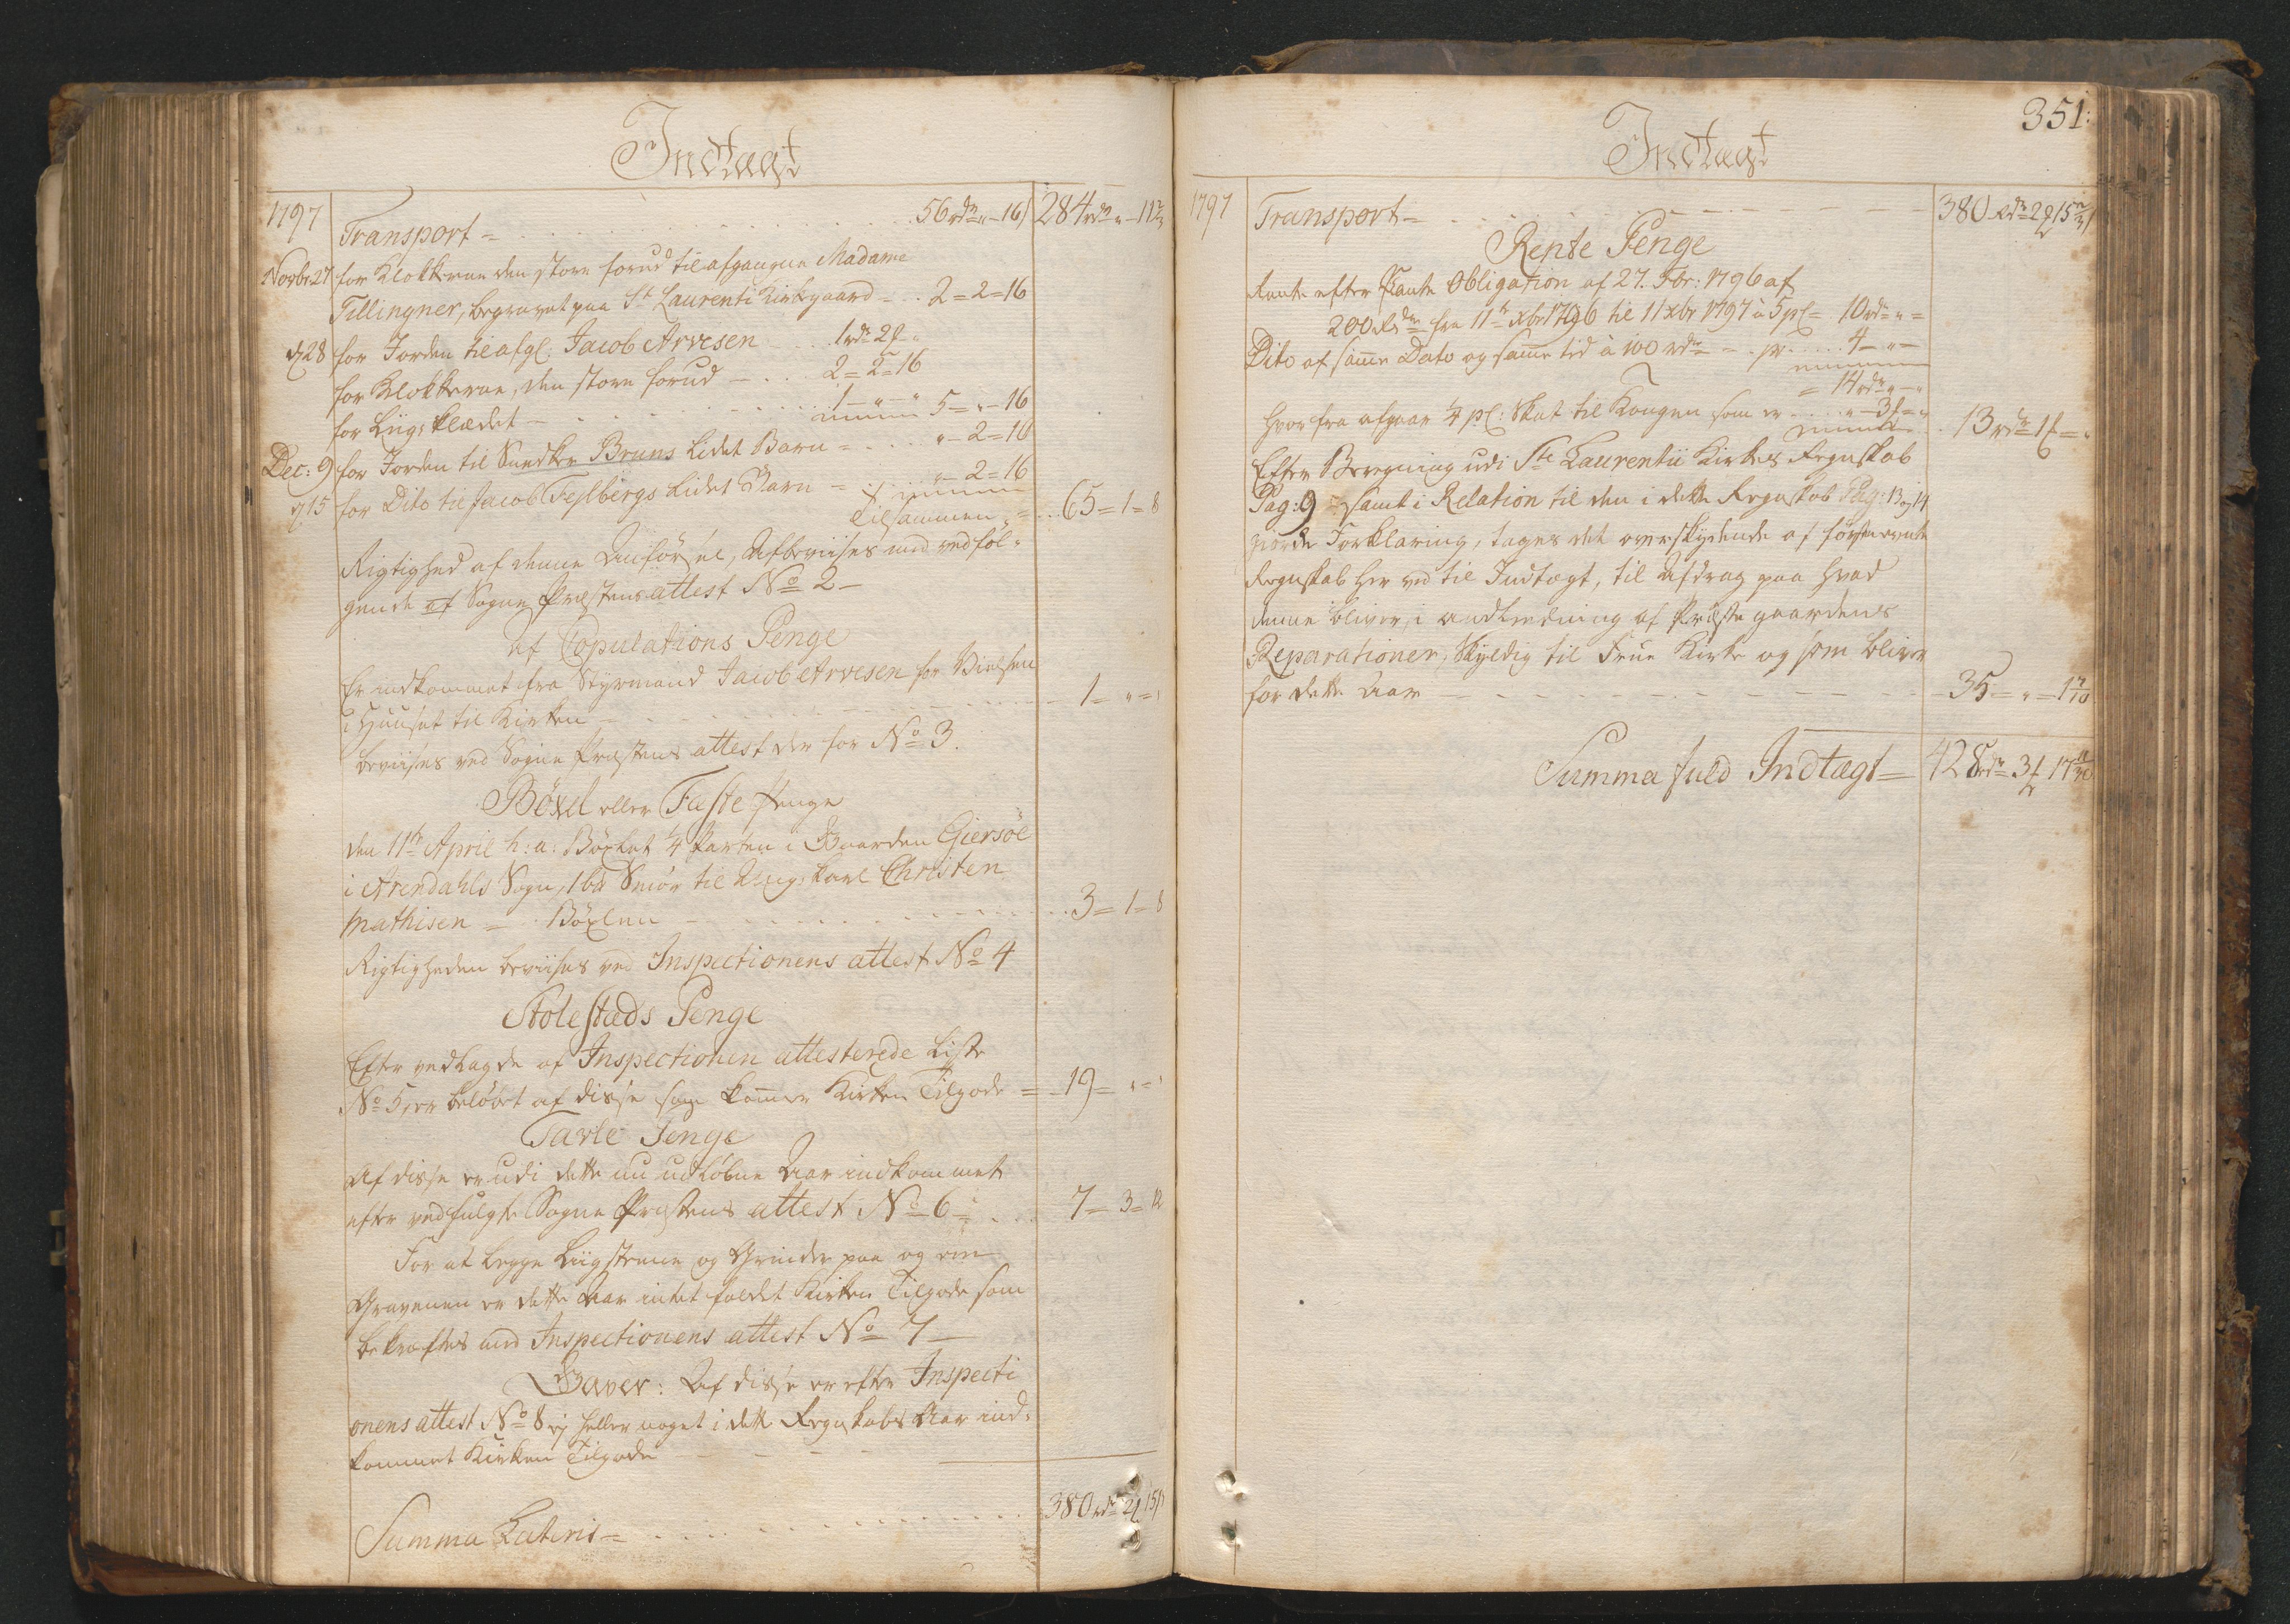 Indtægt
1797 Transport = 56 rdr „ – 16 s 284 rdr „ – 11
Novbr 27 for Klokkerne den store forud til afgangne Madame
Tillingner, begravet paa St Laurenti Kirkegaard = 2 = 2 = 16
d 28 for Jorden til afgl: Jacob Arvesen 1 rdr 2 „
for Klokkerne, den store forud – 2 = 2 = 16
for Liigklædet – 1 – „ – „ 5 = „ – 16
Dec: 9 for Jorden til Snedker Bruns lidet Barn = „ – 2 = 16
d 15 for Dito til Jacob Feslbergs lidet Barn = „ – 2 = 16
Tilsammen = 65 = 1 = 8
Rigtighed af denne Anførsel, Afbeviises med vedføl-
gende af Sogne Præstens attest No 2 –
af Copulations Penge
Er indkommet fra Styrmand Jacob Arvesen for Vielsen
i Huuset til Kirken 1 – „ = „
beviises ved Sogne Præstens attest der for No 3.
Böxel eller Fæste Penge
den 11te April h: a: Böxlet 1/4 Parten i Gaarden Giersöe
i Arendahls Sogn, 1 Smör til Ungkarl Christen
Mathisen = Böxlen 3 = 1 = 8
Rigtigheden beviises ved Inspectionens attest No 4
Stolestads Penge
Efter vedlagde af Inspectionen attesterede Liste
No 5, er beløbet af disse som kommer Kirken Tilgode = 19 = „ = „
Tavle Penge
Af disse er udi dette nu udløbne Aar indkommet
efter vedfulgte Sogne Præstens attest No 6 – 7 = 3 = 12
For at legge Liigsteene og Grinder paa og om
Gravenen er dette Aar intet faldet Kirken Tilgode som
bekræftes med Inspectionens attest No 7 –
Gaver: Af disse er efter Inspecti
onens attest No 8 ej heller noget i dette Regnskabs Aar ind-
kommet Kirken Tilgode
Summa Lateris = 380 rdr 2 15
351:
Indtægt
1797 Transport = 380 Rdr 2 15
Rente Penge
Rente efter Pante Obligation af 27. Fbr: 1796 af
200 Rdr fra 11te Xbr 1796 til 11 Xbr 1797 à 5 pC = 10 rdr „ =
Dito af samme Dato og samme tid à 100 rdr – pr 4 – „ –
= 14 rdr „ – „
hvor fra afgaar 1/4 pC: Skat til Kongen som er „ – 3 = „ 13 rdr 1 = „
Efter Beregning udi Ste Laurentii Kirkes Regnskab
Pag: 9 – samt i Relation til den i dette Regnskab Pag: 13 og 14
giorde Forklaring, tages det overskydende af førstnævnte
Regnskab her ved til Indtægt, til Afdrag paa hvad
denne bliver, i andledning af Præstegaardens
Reparationer, Skyldig til Frue Kirke og som bliver
for dette Aar 35 = „ – 1
Summa fuld Indtægt = 428 rdr 3 17